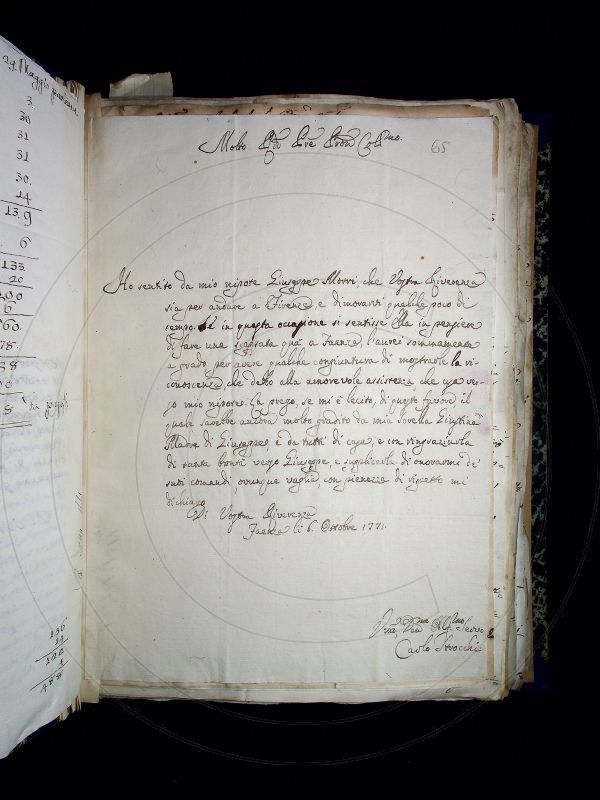 29 Maggio
3.
30
31
31
30.
14
13.9
6
133.
20
6
60.
78.
8
8
Molto
65
Ho sentito da mio nipote Giuseppe Morri, che Vostra Riverenza
sia per andare a Firenze, e dimorarvi qualche poco di
tempo. Se in questa occasione si sentisse Ella in pensiere
di fare una scappata quà a Faenza l'aurei sommamente
a grado per avere qualche congiuntura di mostrarle la ri-
conoscenza, che debbo alla amorevole assistenza che usa ver-
so mio nipote. La prego, se mi è lecito, di questo favore il
quale sarebbe ancora molto gradito da mia Sorella Giustina
Madre di Giuseppe, e da tutti di casa, e con ringraziarla
di tanta bontà verso Giuseppe, e supplicarla di onorarmi de'
suoi comandi, ovunque vaglia, con pienezza di rispetto mi
dichiaro
Di Vostra Riverenza
Faenza li 6. Ottobre 1771.
Servo
Carlo Strocchi
136
14
1
488